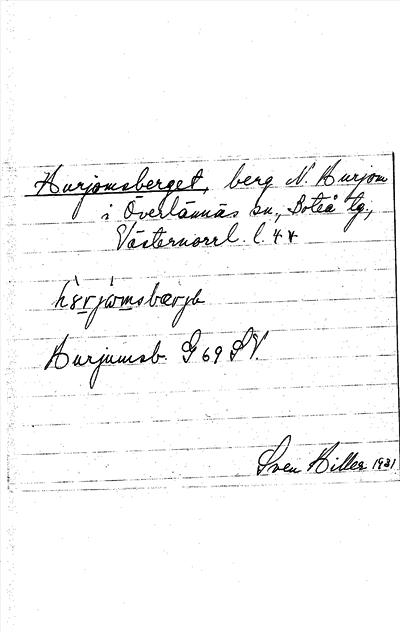 Hurjomsberget, berg N. Hurjom
i Överlännäs sn, Boteå tg,
Västernorrl. l.
Hurjumsb. G 69 SV.
Sven Hiller 1931